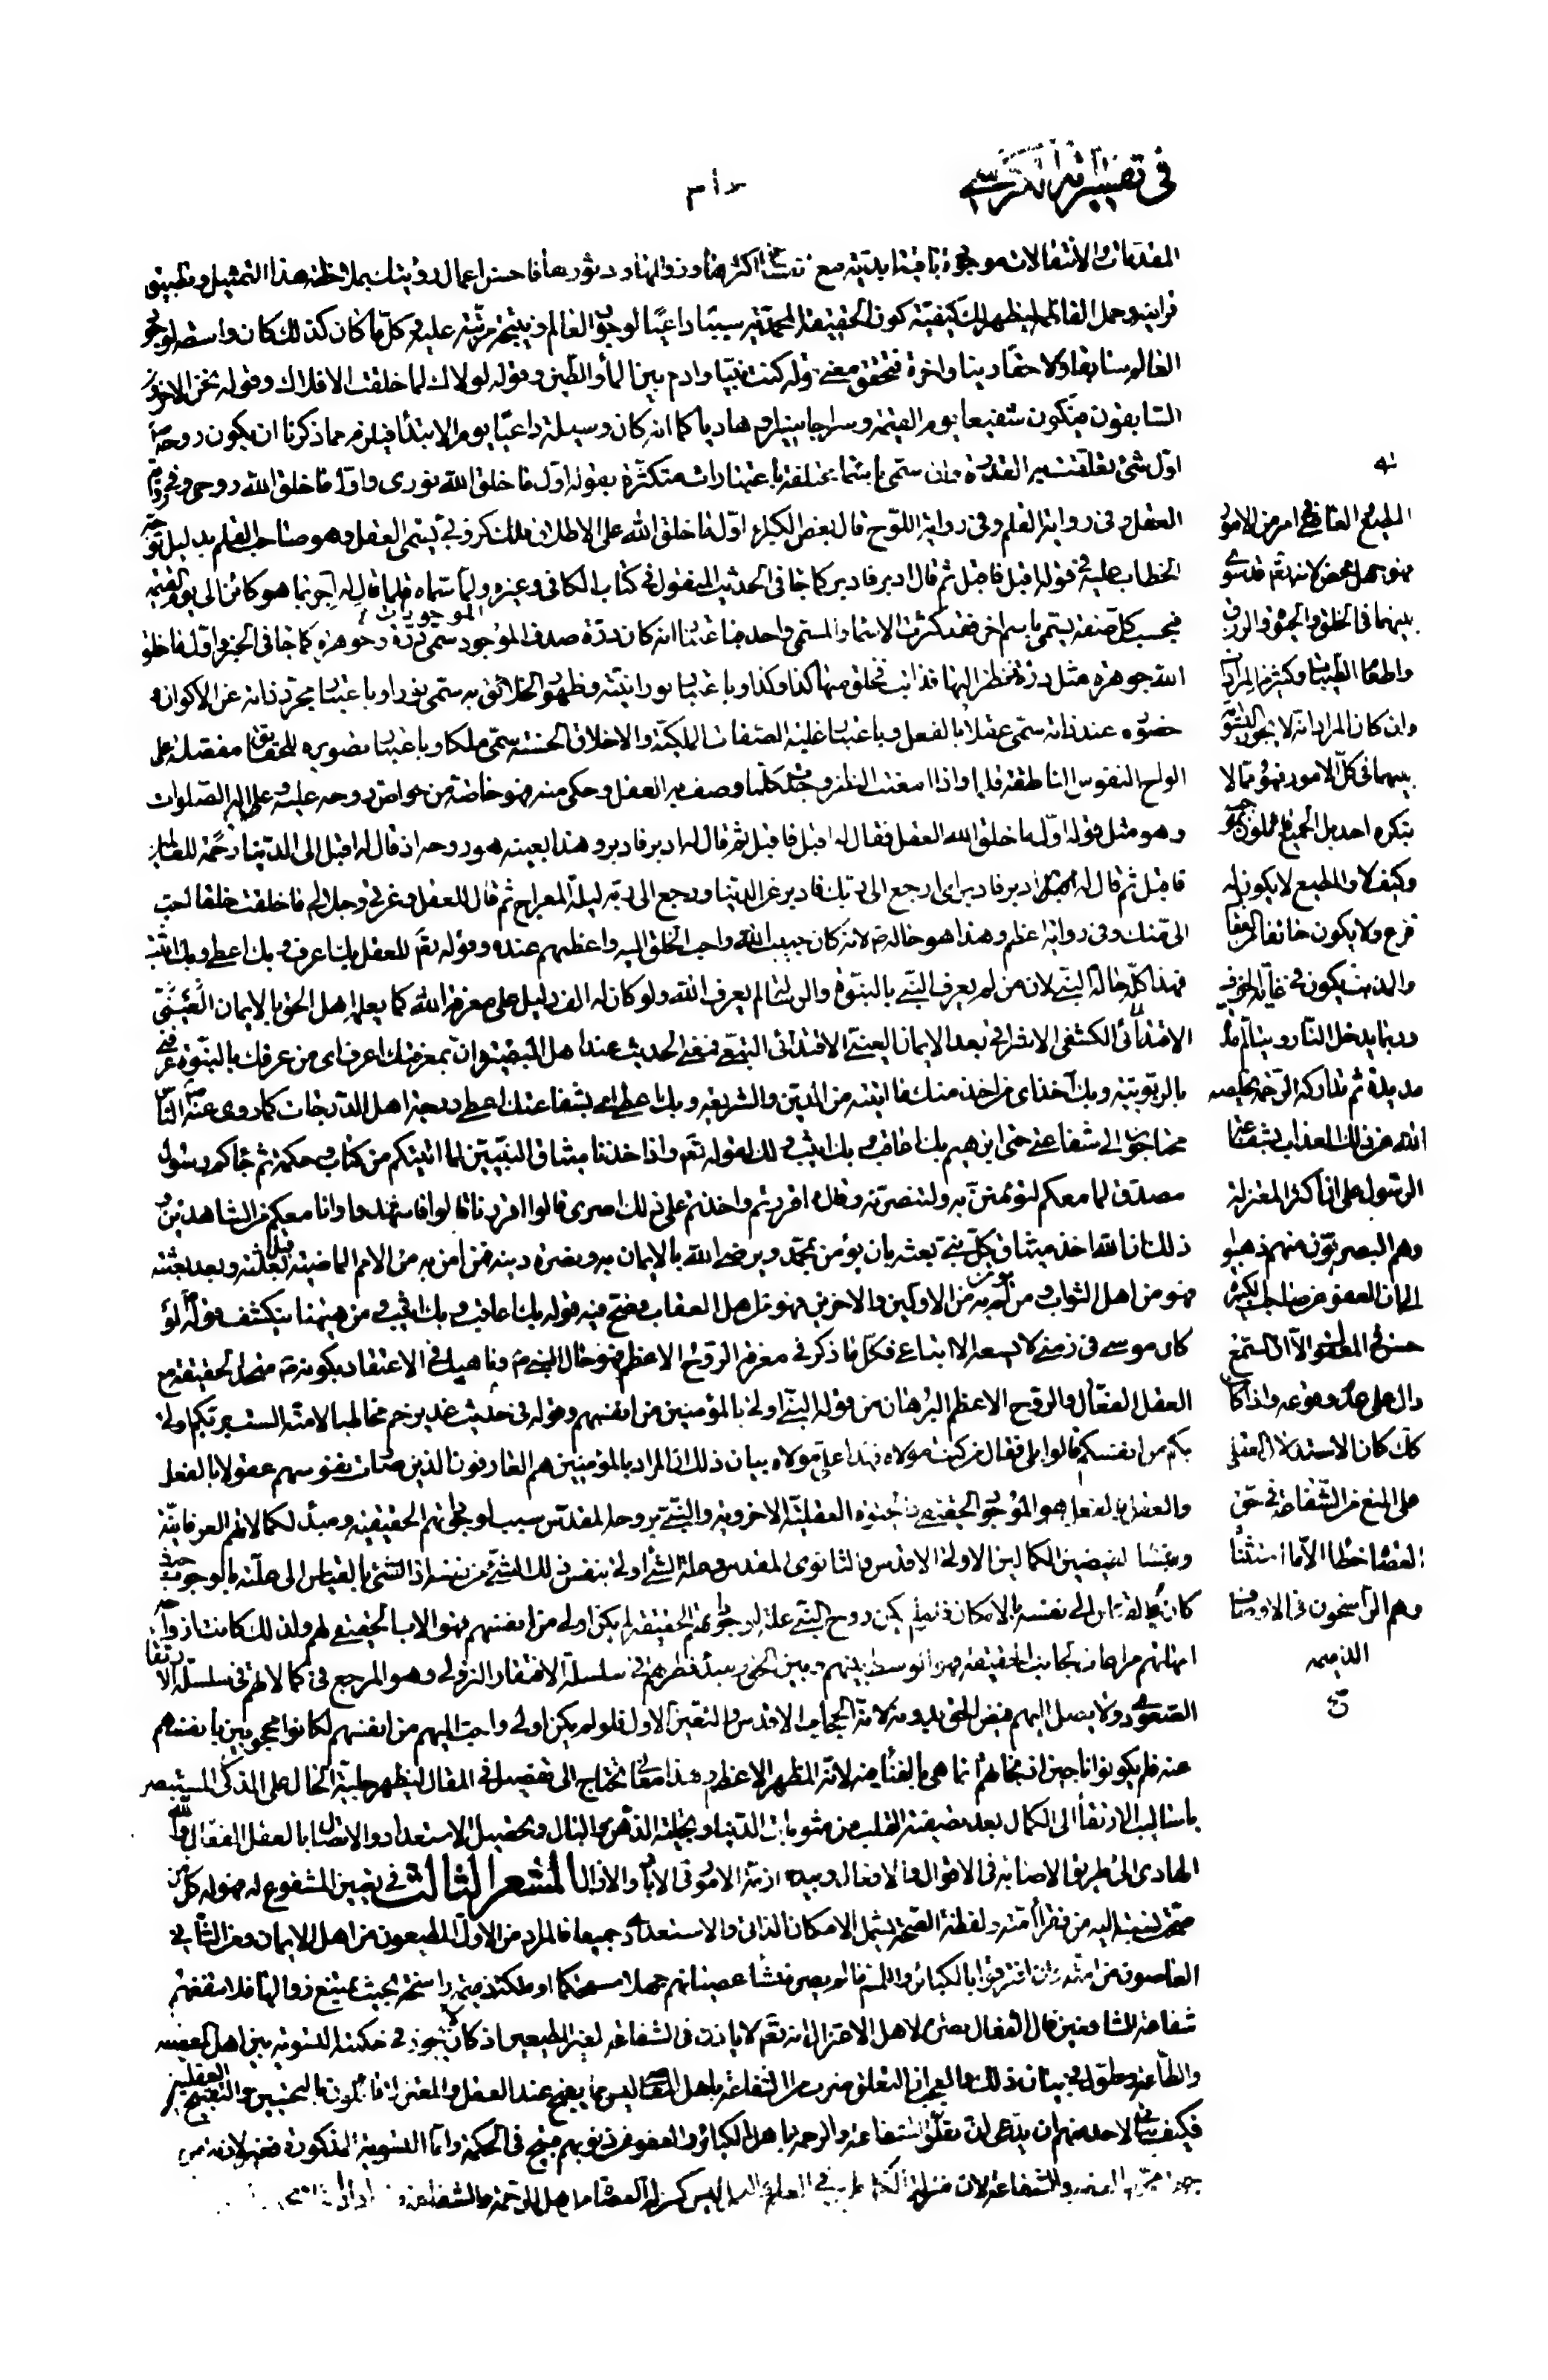 في تفسير آية الكرسي
٣٠١
المقدمات والانتقالات موجودة باقية ابدية مع اكثرها وزوالها ودثورها فاحسن اعمال رويتك بملاحظة هذا التمثيل وتطبيق
قرائنه وحمل ليظهر لك كيفية كون الحقيقة المحمدية سببا داعيا لوجود العالم ونتيجة مرتبة عليه وكل ما كان كذلك كان واسطة لوجود
العالم سابقا ولاحقا دينا واخرة فتحقق معنى قوله كنت نبيا وادم بين الماء والطين وقوله لولاك لما خلقت الافلاك وقوله نحن الاخرون
السابقون فيكون شفيعا يوم القيمة وسراجا منيرا وهاديا كما انه كان وسيلة داعيا يوم الابتداء فيلزم مما ذكرنا ان يكون روحه
اول شئ تعلقت به القدرة وان سمي باسماء مختلفة باعتبارات متكثرة بقوله اول ما خلق الله نوري واول ما خلق الله روحي وفي رواية
العقل وفي رواية القلم وفي رواية اللوح قال بعض الكبراء اول ما خلق الله على الاطلاق ملك كروبي يسمى العقل وهو صاحب القلم بدليل توجه
الخطاب عليه في قوله اقبل فاقبل ثم قال ادبر فادبر كما جاء في الحديث المنقول في كتاب الكافي وغيره ولما سماه قلما قال له اجر بما هو كائن الى يوم القيمة
فبحسب كل صفة يسمى باسم اخر فقد كثرت الاسماء والمسمى واحد فباعتبار انه كان درة صدف الموجودات سمي درة وجوهرة كما جاء في الخبر اول ما خلق
الله جوهرة مثل درة فنظر اليها فذابت فخلق منها كذا وكذا وباعتبار نورانيته وظهور الخلائق به سمي نورا وباعتبار تجرد ذاته عن الاكوان
حضوره عند ذاته سمي عقلا بالفعل وباعتبار غلبة الصفات الملكية والاخلاق الحسنة سمي ملكا وباعتبار تصويره للحقايق مفصلة على
الواح النفوس الناطقة قلما واذا امعنت النظر وجدت كلما وصف به العقل وحكي منه فهو خاصة من خواص روحه عليه وعلى اله الصلوات
وهو مثل قوله اول ما خلق الله العقل فقال له اقبل فاقبل ثم قال له ادبر فادبر وهذا بعينه هو روحه اذ قال له اقبل الى الدنيا رحمة للعالمين
فاقبل ثم قال له ادبر فادبر اي ارجع الى ربك فادبر عن الدنيا ورجع الى ربه ليلة المعراج ثم قال للعقل وعزتي وجلالي ما خلقت خلقا احب
الي منك وفي رواية اعظم وهذا هو حاله ص لانه كان حبيب الله واحب الخلق اليه واعظمهم عنده وقوله تعم للعقل بك اعرف وبك اعطي وبك اثيب
فهذا كله حال النبي لان من لم يعرف النبي بالنبوة والرسالة لم يعرف الله ولو كان له الف دليل على معرفة الله كما يعلمه اهل الحق بالايمان العيني
الكشفي بعد الايمان الغيبي فمعنى الحديث عند اهل التبصر ان بمعرفتك اعرف اي من عرفك بالنبوة عرفني
بالربوبية وبك اخذ اي من اخذ منك ما اتيته من الدين والشريعة وبك اعطي اي بشفاعتك اعطي درجة اهل الدرجات كما روى عنه ص الناس
محتاجون الى شفاعتي حتى ابرهيم بك اعاقب وبك اثيب وذلك لقوله تعم واذ اخذنا ميثاق النبيين لما اتيتكم من كتاب وحكمة ثم جاءكم رسول
مصدق لما معكم لتؤمنن به ولتنصرنه وقال ءاقررتم واخذتم على ذلك اصري قالوا اقررنا قال فاشهدوا وانا معكم من الشاهدين
ذلك ان الله اخذ ميثاق كل نبي بعثه بان يؤمن بمحمد ويوصي الله بالايمان به وبنصرة دينه فمن امن به من الامم الماضية قبل بعثته وبعد بعثته
فهو من اهل الثواب ومن لم يؤمن به من الاولين والاخرين فهو من اهل العقاب وصح فيه قوله بك اعاقب وبك اثيب ومن هيهنا ينكشف قوله لو
كان موسى في زمني لا يسعه الا اتباعي فكل ما ذكر في معرفة الروح الاعظم فهو حال النبي ص وناهيك في الاعتقاد بكونه ص متحد الحقيقة مع
العقل الفعال والروح الاعظم البرهان من قوله النبي اولى بالمؤمنين من انفسهم وقوله في حديث غدير خم مخاطبا لامته الست بربكم اولى
بكم من انفسكم قالوا بلى فقال من كنت مولاه فهذا علي مولاه بيان ذلك ان المراد بالمؤمنين هم العارفون الذين صارت نفوسهم عقولا بالفعل
والعقل بالفعل هو الموجود الحقيقي في النشأة العقلية الاخروية والنبي بروحه المقدس سبب لوجوداتهم الحقيقية ومبدأ لكمالاتهم العرفانية
ومنشأ لفيضين الكمالين الاولى الاقدس والثانوي المقدس وعلة الشئ اولى بنفس ذلك الشئ من نفسه اذ الشئ بالقياس الى علته بالوجوب
كان وبالقياس الى نفسه بالامكان فلو لم يكن روح النبي علة لوجوداتهم الحقيقية لم يكن اولى من انفسهم فهو الاب الحقيقي لهم ولذلك كانت ازواجه
امهاتهم مراعاة لجانب الحقيقة فهو الوسط بينهم وبين الحق ومبدأ فطرتهم في سلسلة الافتقار النزولي وهو المرجع في كمالاتهم في سلسلة الارتقاء
الصعودي ولا يصل اليهم فيض الحق بدونه لانه الحجاب الاقدس والتعين الاول فلو لم يكن اولى واحب اليهم من انفسهم لكانوا محجوبين بانفسهم
عنه فلم يكونوا ناجين اذ نجاتهم انما هي بالفناء فيه لانه المظهر الاعظم وهذا معنى يحتاج الى تفصيل في المقال ليظهر جلية الحال على الذكي المستبصر
باساليب الارتقاء الى الكمال بعد تصفية القلب من مشوبات الدنيا وتخلية الذهن والبال وتحصيل الاستعداد والاتصال بالعقل الفعال والله
الهادي الى طريق الاصابة في الاقوال والافعال وبيده ازمة الامور في الادبار والاقبال المشعر الثالث في تعيين المشفوع له فهو له كل من
صحت نسبته اليه من فقراء امته ولفظة الصحة يشمل الامكان الذاتي والاستعدادي جميعا فالمراد من الاول المطيعون من اهل الايمان ومن الثاني
العاصون من امته وان اقترفوا بالكبائر واللمم ما لم يصر منشأ عصيانهم جهلا مستحكما او ملكة ذميمة راسخة بحيث يمتنع زوالها فلا تنفعهم
شفاعة الشافعين قال القفال نصرة لاهل الاعتزال انه تعم لا ياذن في الشفاعة لغير المطيعين اذ كان لا يجوز في حكمته التسوية بين اهل المعصية
والطاعة وطول في بيان ذلك والعجب ان التعلق من باب الشفاعة باهل العصيان ليس مما يقبح عند العقل والمعتزلة قائلون بالتحسين والتقبيح العقليين
فكيف يتأتى لاحد منهم ان يدعى ان تعلق الشفاعة والرحمة باهل الكبائر والعفو عن ذنوبهم قبيح في الحكمة واما التسوية المذكورة فغير لازمة من
والشفاعة لان منزلة
المطيع العاصي في امر من الامور
فهو جهل محض لانه تعم قد سوى
بينهما في الخلق والحيوة والرزق
واطعام الطيبات وكثير من المرادات
وان كان المراد انه لا يجوز التسوية
بينهما في كل الامور فهو مما لا
ينكره احد بل الجميع قائلون به
وكيف لا والمطيع لا يكون له
فزع ولا يكون خائفا من العقاب
والمذنب يكون في غاية الخوف
وربما يدخل النار ويتألم مدة
مديدة ثم تداركه الرحمة ويخلصه
الله عن ذلك العذاب بشفاعة
الرسول على ان اكثر المعتزلة
وهم البصريون منهم ذهبوا
الى ان العفو عن صاحب الكبيرة
حسن في العقل الا ان السمع
دال على عدم وقوعه واذا كان
كك كان الاستدلال العقلي
على المنع من الشفاعة في حق
العصاة خطأ الا ما استثنينا
وهم الراسخون في الاوصاف
الذميمة